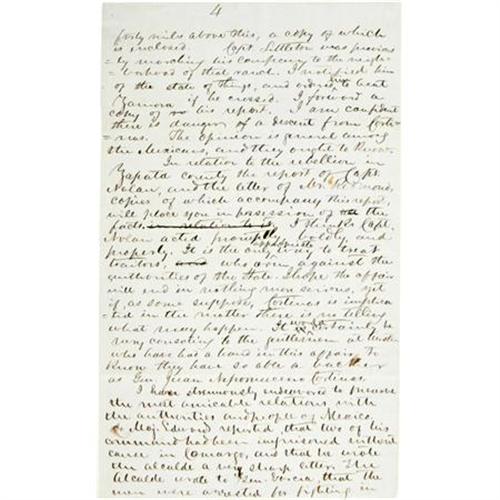 4
forty miles above this, a copy of which
is inclosed. Capt Littleton was previous
=ly marching his company to the neigh
=borhood of that ranch. I notified him
of the state of things, and ordered him to beat
Zamora if he crossed. I forward a
copy of his report. I am confident
there is danger of a descent from Corti-
=nas. The opinion is general among
the Mexicans, and they ought to know.
In relation to the rebellion in
Zapata county the report of Capt
Nolan, and the letter of Mr. Redmond,
copies of which accompany this report,
will place you in possession of the
facts in relation to it. I think Capt.
Nolan acted promptly, boldly and
properly. It is the only way to treat
traitors, who arm against the
authorities of the State. I hope the affair
will end in nothing more serious, yet
if, as some suppose, Cortinas is implica
=ted in the matter there is no telling
what may happen. It would certainly be
very consoling to the gentlemen at
who have had a hand in this affair to
know they have so able a backer
as Gen. Juan Nepomuceno Cortinas.
I have strenuously endeavored to preserve
the most amicable relations with
the authorities and people of Mexico.
Maj. Edward reported, that two of his
command had been imprisoned without
cause in Camargo, and that he wrote
the alcalde a very sharp letter. The
Alcalde wrote to Gen. Garcia, that the
men were arrested for fighting in